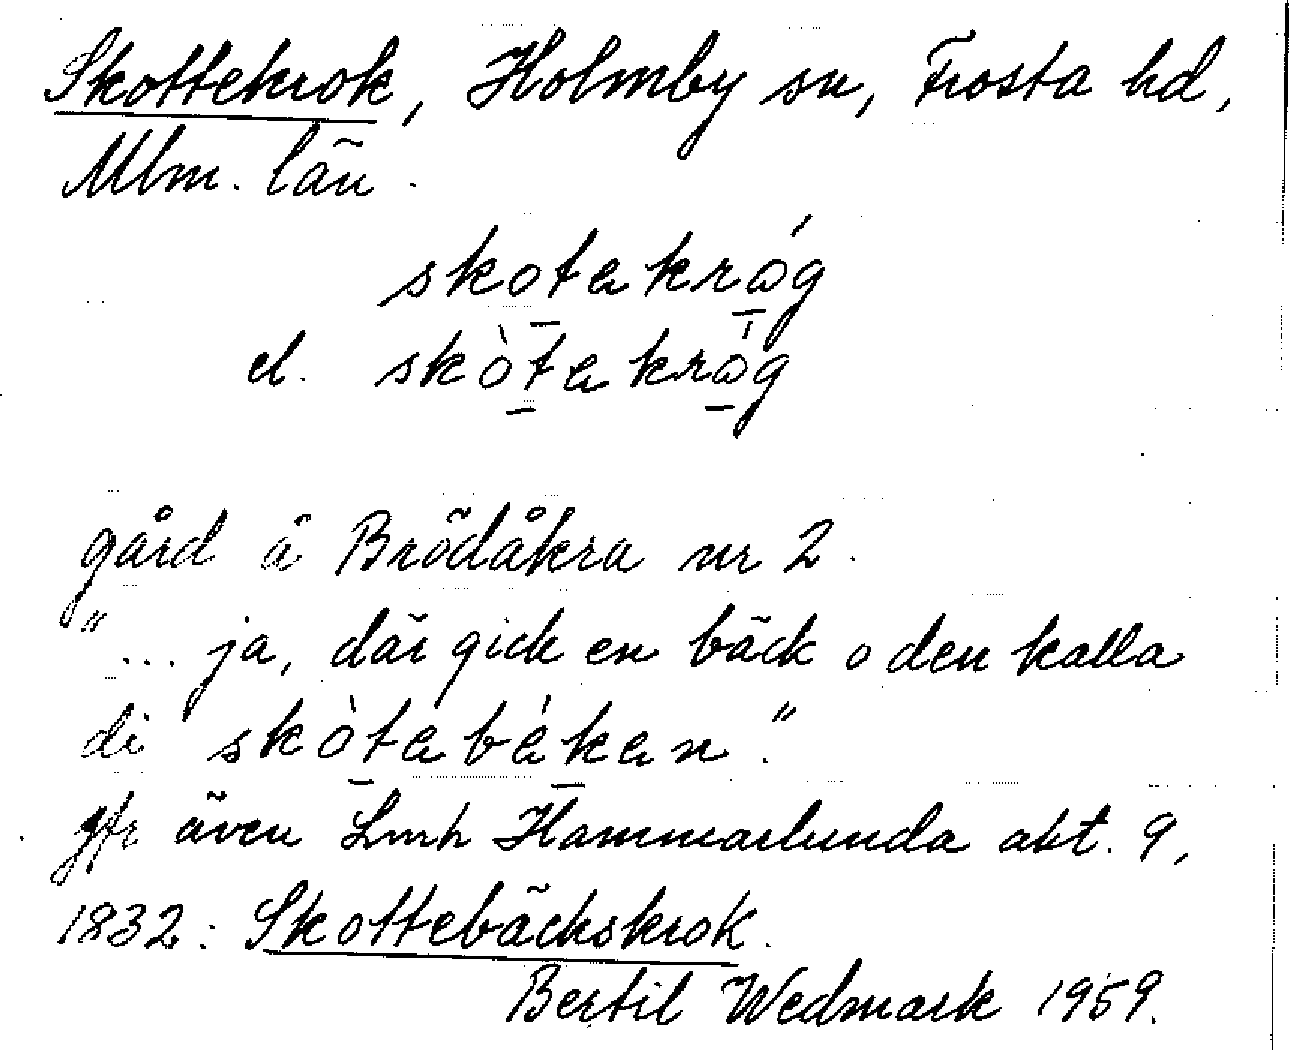 Skottekrok, Holmby sn, Frosta hd,
Mlm. län.
skotakrǻg
el. skòtakrǻg
gård å Brödåkra nr 2.
"... ja, där gick en bäck o den kalla
di skòtabákan."
jfr även Lmh Hammarlunda akt. 9,
1832: Skottebäckskrok.
Bertil Wedmark 1959.